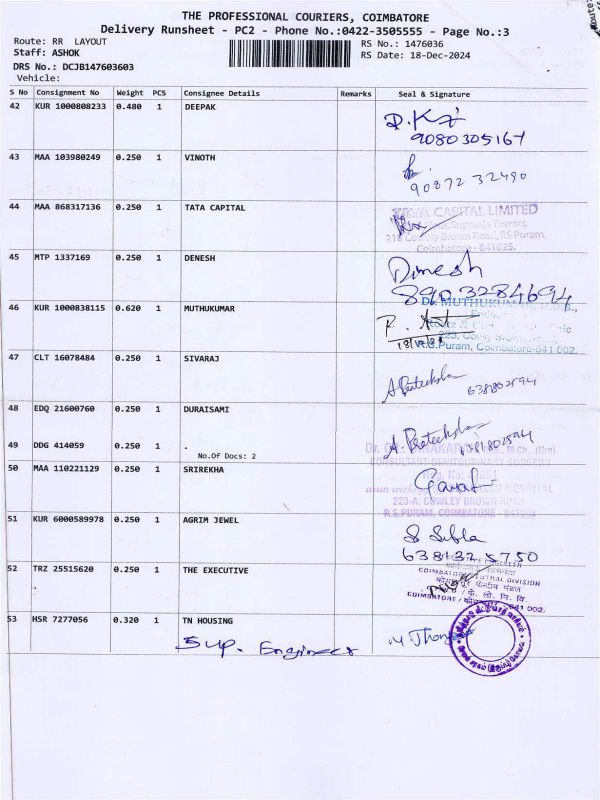 THE PROFESSIONAL COURIERS, COIMBATORE
Delivery Runsheet - PC2 - Phone No.:0422-3505555 - Page No.:3
Route: RR LAYOUT
RS No.: 1476036
Staff: ASHOK
RS Date: 18-Dec-2024
DRS No.: DCJB147603603
Vehicle:
S No Consignment No Weight PCS Consignee Details Remarks Seal & Signature
42 KUR 1000808233 0.480 1 DEEPAK
9080305167
43 MAA 103980249 0.250 1 VINOTH
90872 32490
44 MAA 868317136 0.250 1 TATA CAPITAL
CAPITAL LIMITED
Coimbatore - 641025.
45 MTP 1337169 0.250 1 DENESH
Dinesh
8903284694
46 KUR 1000838115 0.620 1 MUTHUKUMAR
Dr. MUTHUKUM
R.S.Puram, Coimbatore-641 002.
47 CLT 16078484 0.250 1 SIVARAJ
48 EDQ 21600760 0.250 1 DURAISAMI
49 DDG 414059 0.250 1 .
No.Of Docs: 2
50 MAA 110221129 0.250 1 SRIREKHA
223-A, COWLEY BROWN ROAD
R.S.PURAM, COIMBATORE
51 KUR 6000589978 0.250 1 AGRIM JEWEL
52 TRZ 25515620 0.250 1 THE EXECUTIVE
CENTRAL DIVISION
COIMBATORE
641 002.
53 HSR 7277056 0.320 1 TN HOUSING
Sup. Engineer